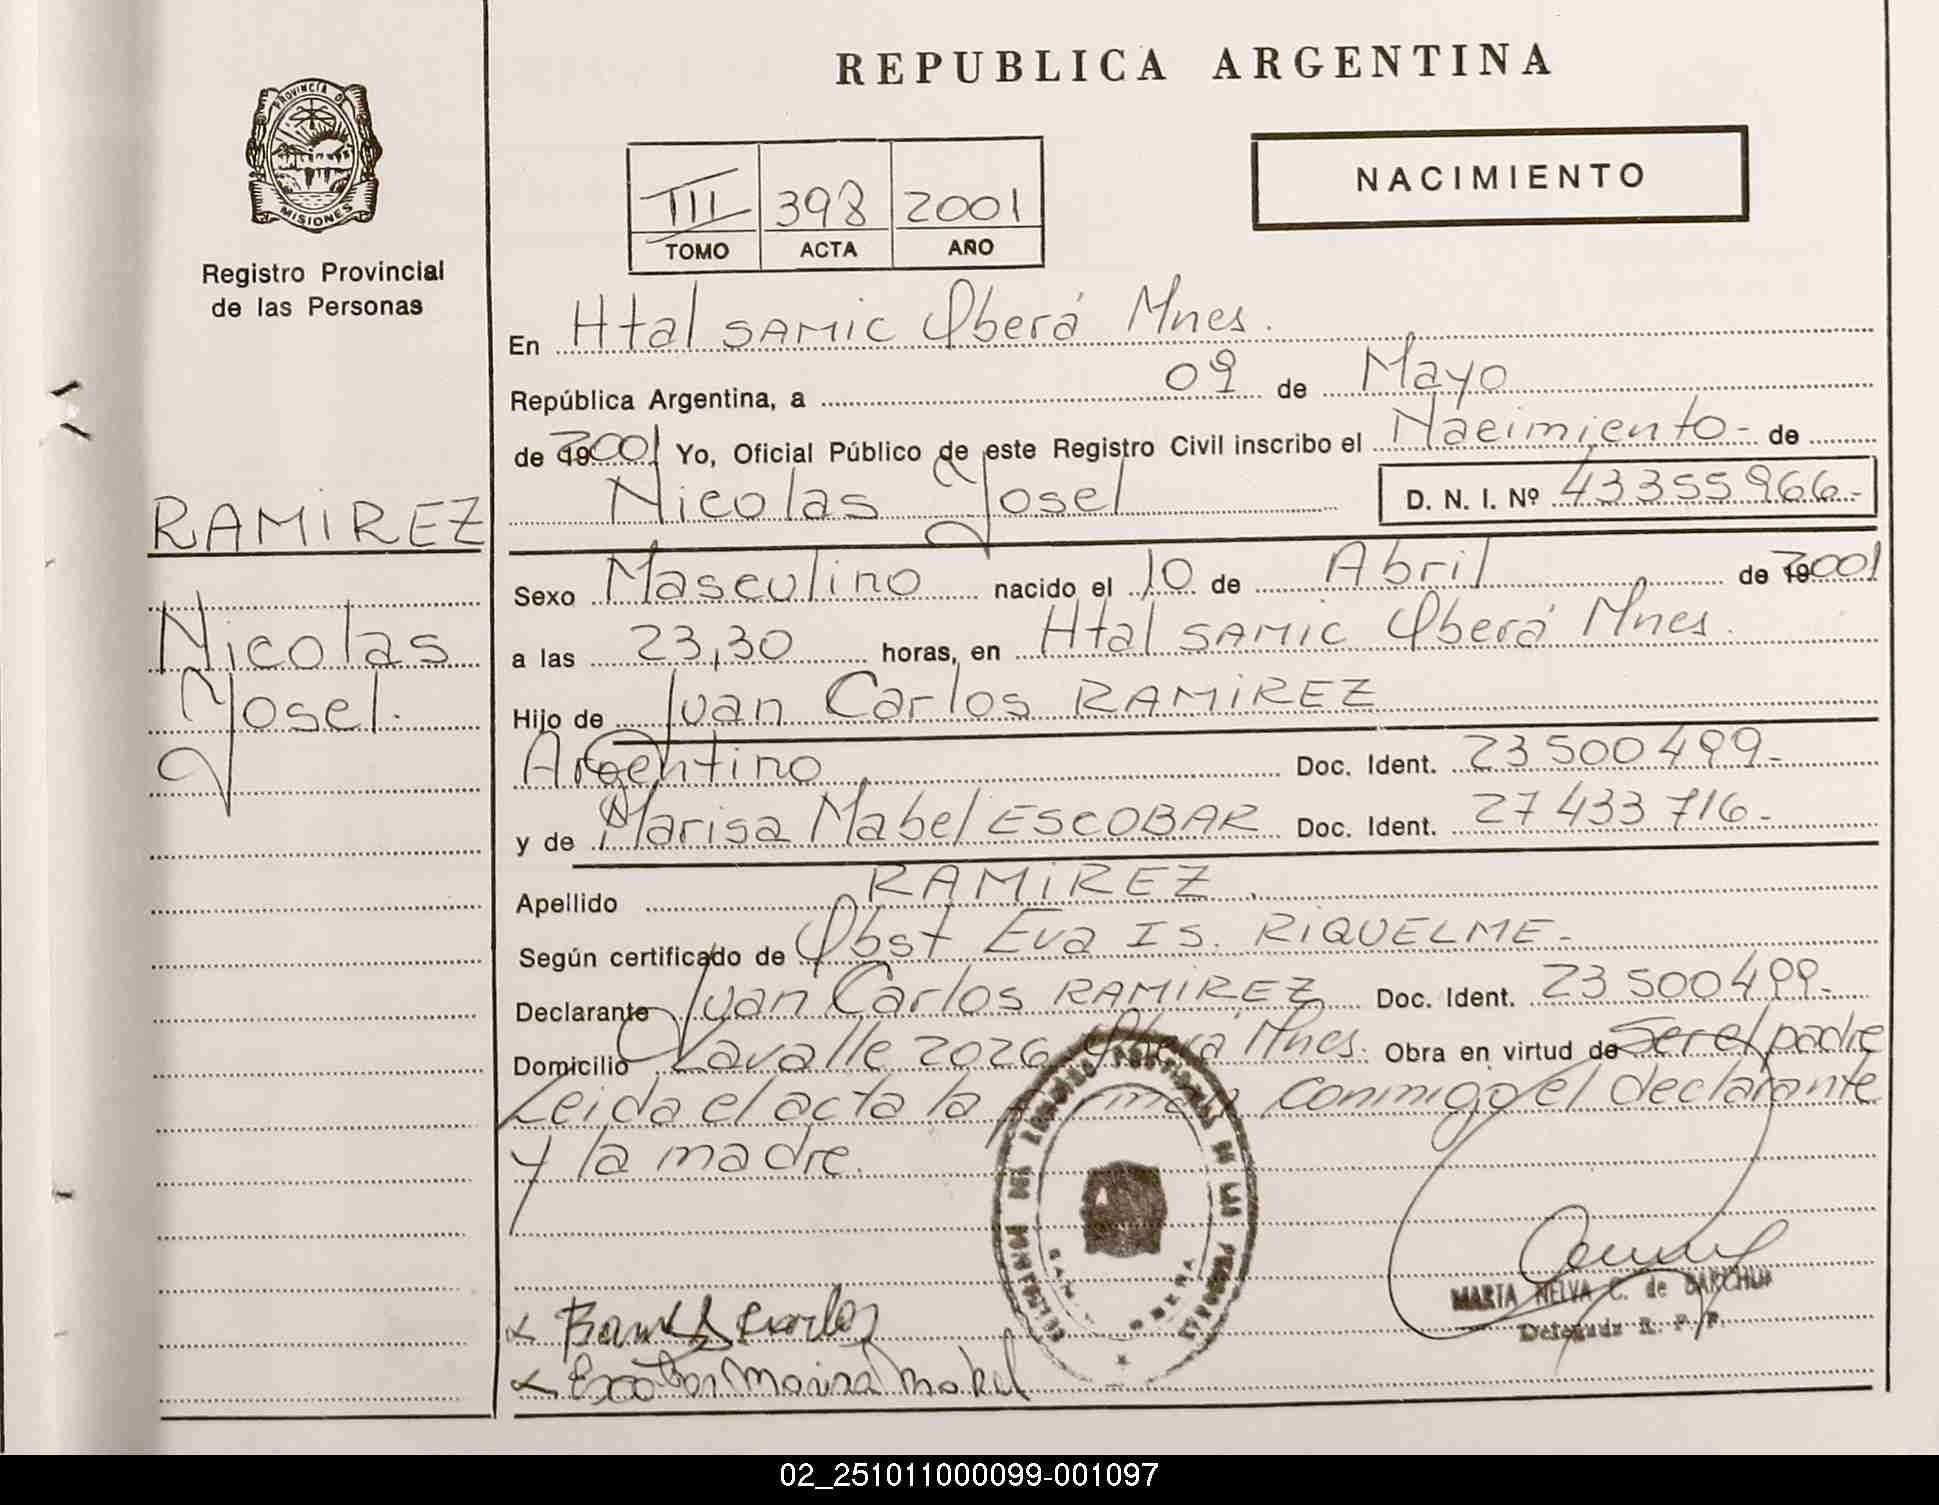 REPUBLICA ARGENTINA
PROVINCIA DE
MISIONES
Registro Provincial
de las Personas
III 398 2001
TOMO ACTA AÑO
NACIMIENTO
RAMIREZ
Nicolas
Yosel.
En Htal SAMIC Oberá Mnes.
República Argentina, a 09 de Mayo
de 2001 Yo, Oficial Público de este Registro Civil inscribo el Nacimiento - de
Nicolas Yosel D. N. I. Nº 43355966.-
Sexo Masculino nacido el 10 de Abril de 2001
a las 23,30 horas, en Htal SAMIC Oberá Mnes.
Hijo de Juan Carlos RAMIREZ
Argentino Doc. Ident. 23 500 499.-
y de Marisa Mabel ESCOBAR Doc. Ident. 27 433 716.-
Apellido RAMIREZ
Según certificado de Obst Eva IS. RIQUELME.-
Declarante Juan Carlos RAMIREZ Doc. Ident. 23 500 499.-
Domicilio Lavalle 2026 Oberá Mnes. Obra en virtud de ser el padre
Leida el acta la firman conmigo el declarante
y la madre.
MARTA NELVA C. de
Delegada R. P. P.
Escobar Marisa Mabel
02_251011000099-001097